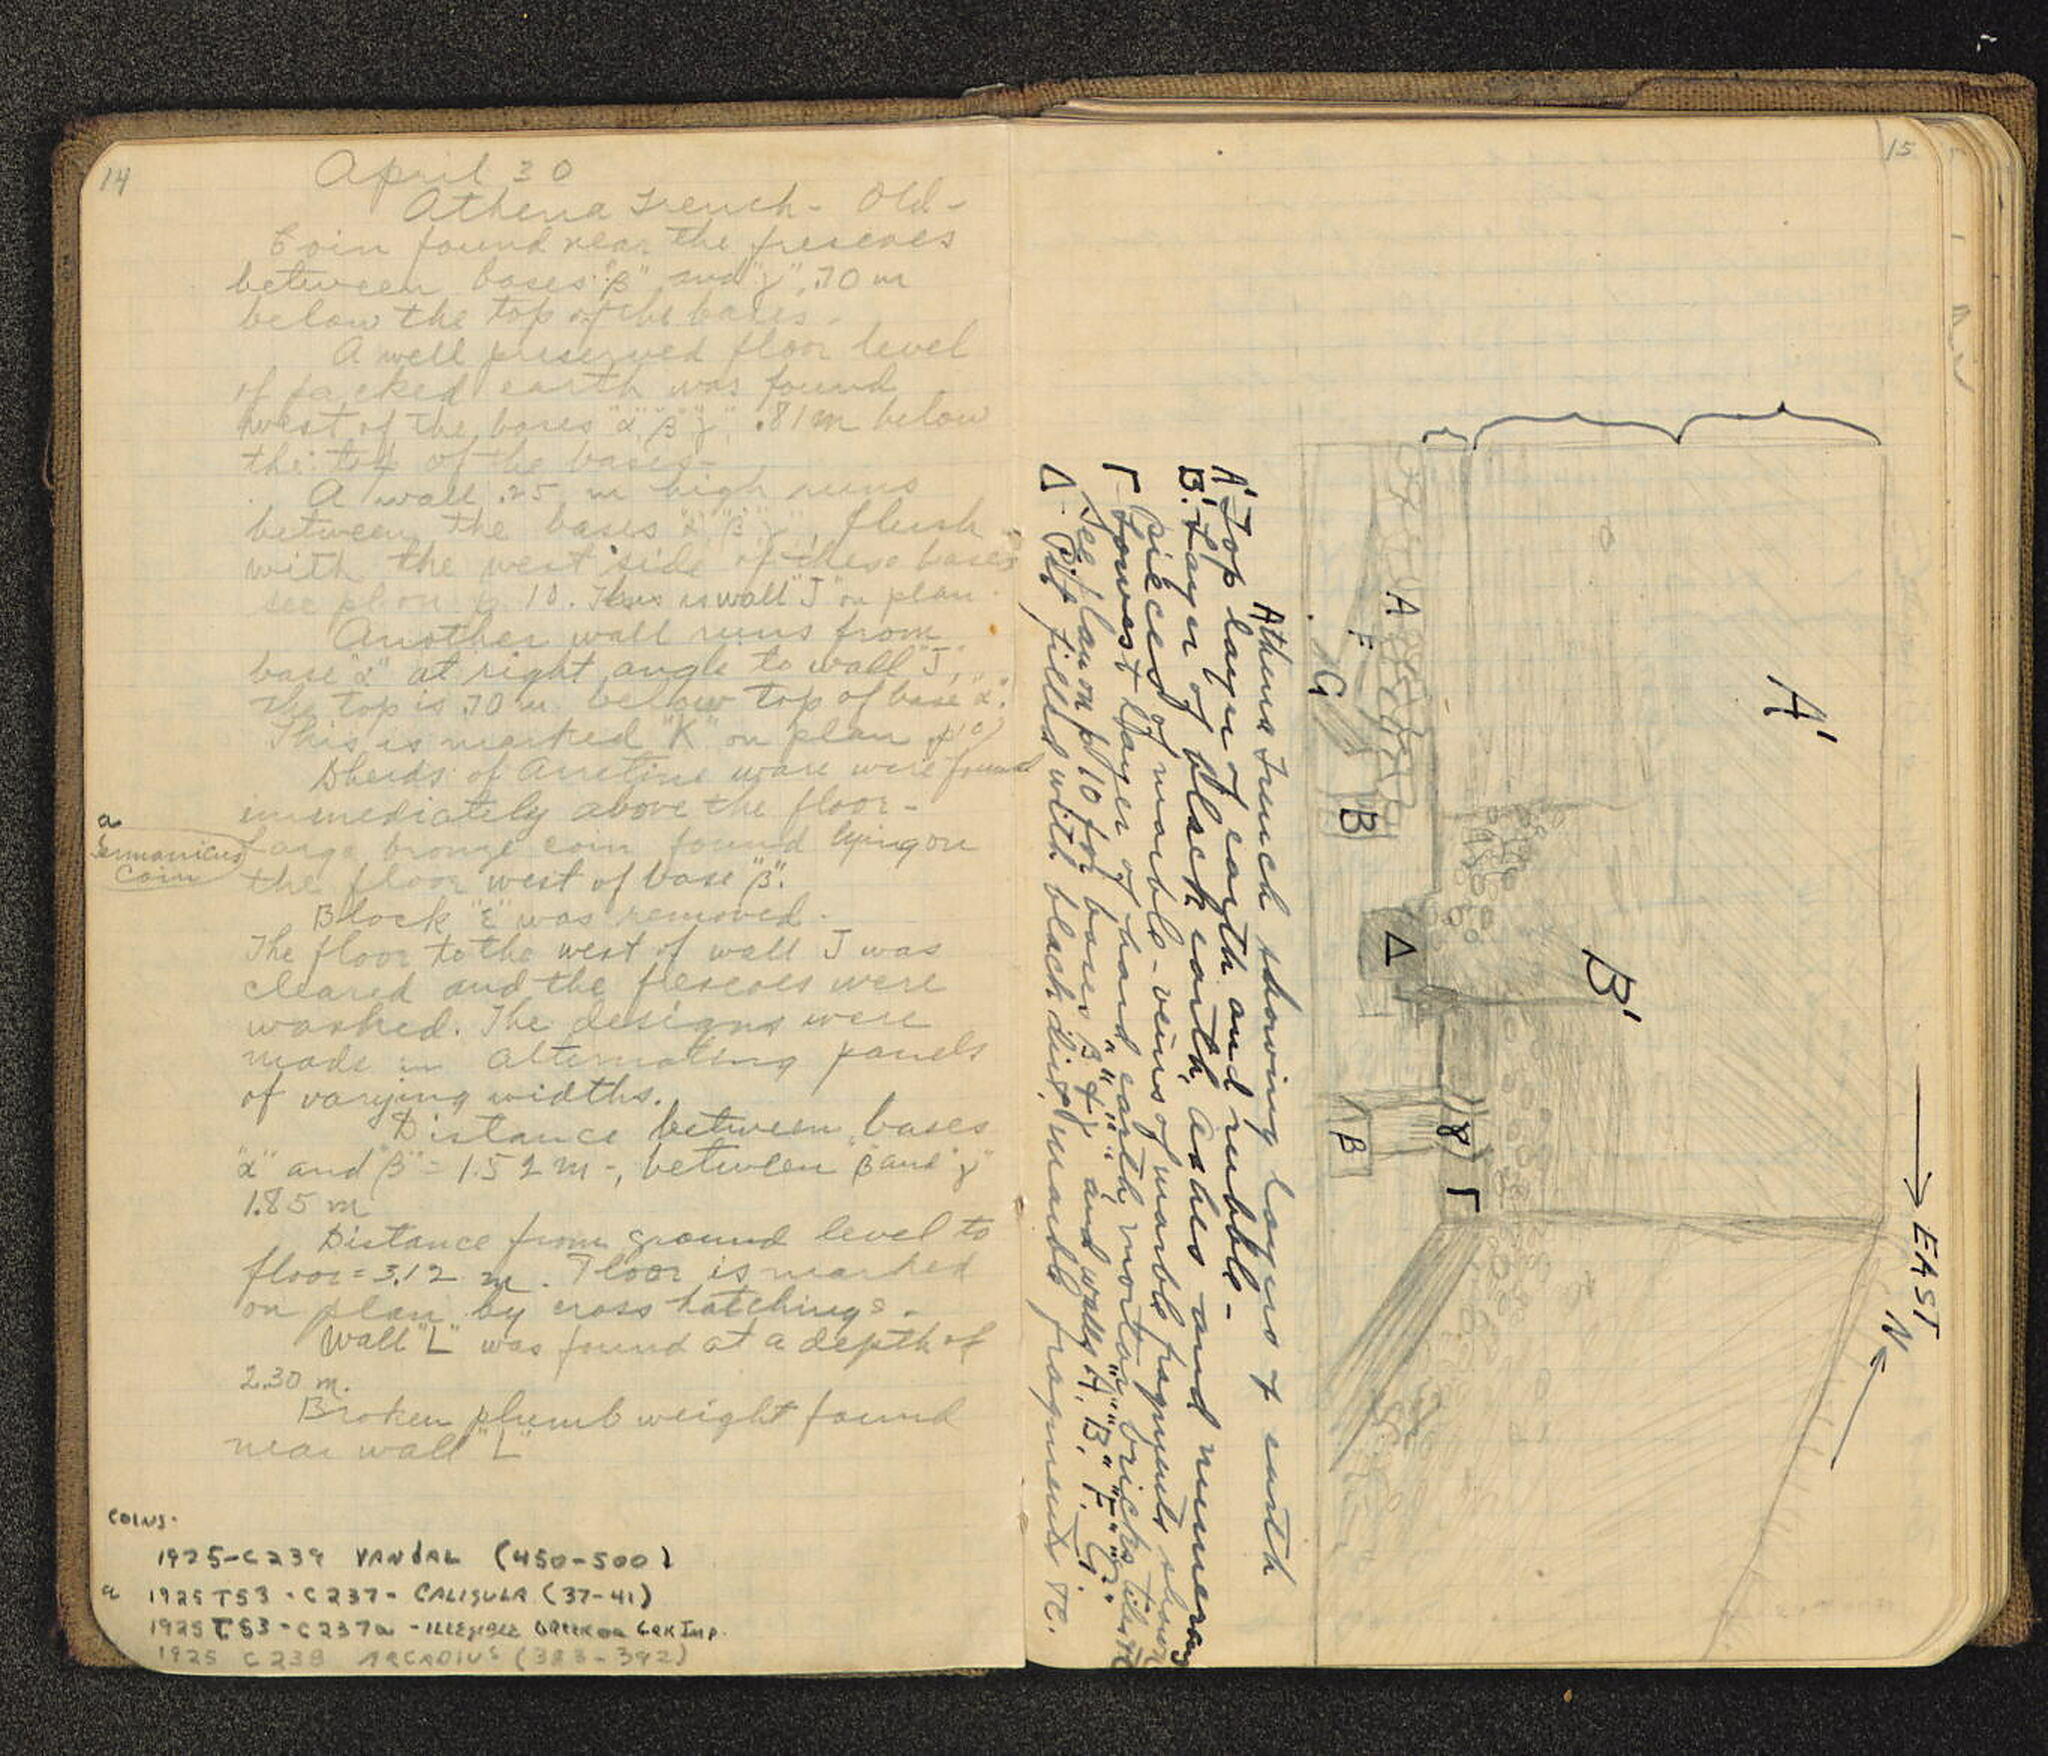 14
April 30
Athena Trench - Old -
Coin found near the frescoes
between bases "β" and "γ", .70 m
below the top of the bases.
A well preserved floor level
of packed earth was found
west of the bases "α", "β" "γ", .81 m below
the top of the bases -
A wall .25 m high runs
between the bases "α", "β", "γ", flush
with the west side of these bases
see plan p. 10. This is wall "J" on plan.
Another wall runs from
base "α" at right angle to wall "J",
the top is .70 m below top of base "α".
This is marked "K" on plan p 10)
Sherds of Arretine ware were found
immediately above the floor -
a
Germanicus
Coin
Large bronze coin found lying on
the floor west of base "β".
Block "ε" was removed.
The floor to the west of wall J was
cleared and the frescoes were
washed. The designs were
made in alternating panels
of varying widths.
Distance between bases
"α" and "β" = 1.52 m -, between "β and "γ"
1.85 m
Distance from ground level to
floor = 3.12 m. Floor is marked
on plan by cross hatchings -
Wall "L" was found at a depth of
2.30 m.
Broken plumb weight found
near wall "L"
COINS.
1925-C239 VANDAL (450-500)
a 1925 T53 - C237 - CALIGULA (37-41)
1925 T53 - C237a - ILLEGIBLE GREEK OR GRK IMP.
1925 C238 ARCADIUS (383-392)
15
EAST
N
A'
B'
A
F
G
B
Δ
γ
Γ
β
Athena Trench showing layers of earth
A' Top layer of earth and rubble -
B'. Layer of black earth, ashes and numerous
pieces of marble - veins of marble fragments shown
Γ Lowest layer of hard earth, mortar, bricks, tiles etc
See plan on p 10 for bases β & γ and walls "A", "B" "F" "G".
Δ - Pit filled with black dirt, marble fragments etc.